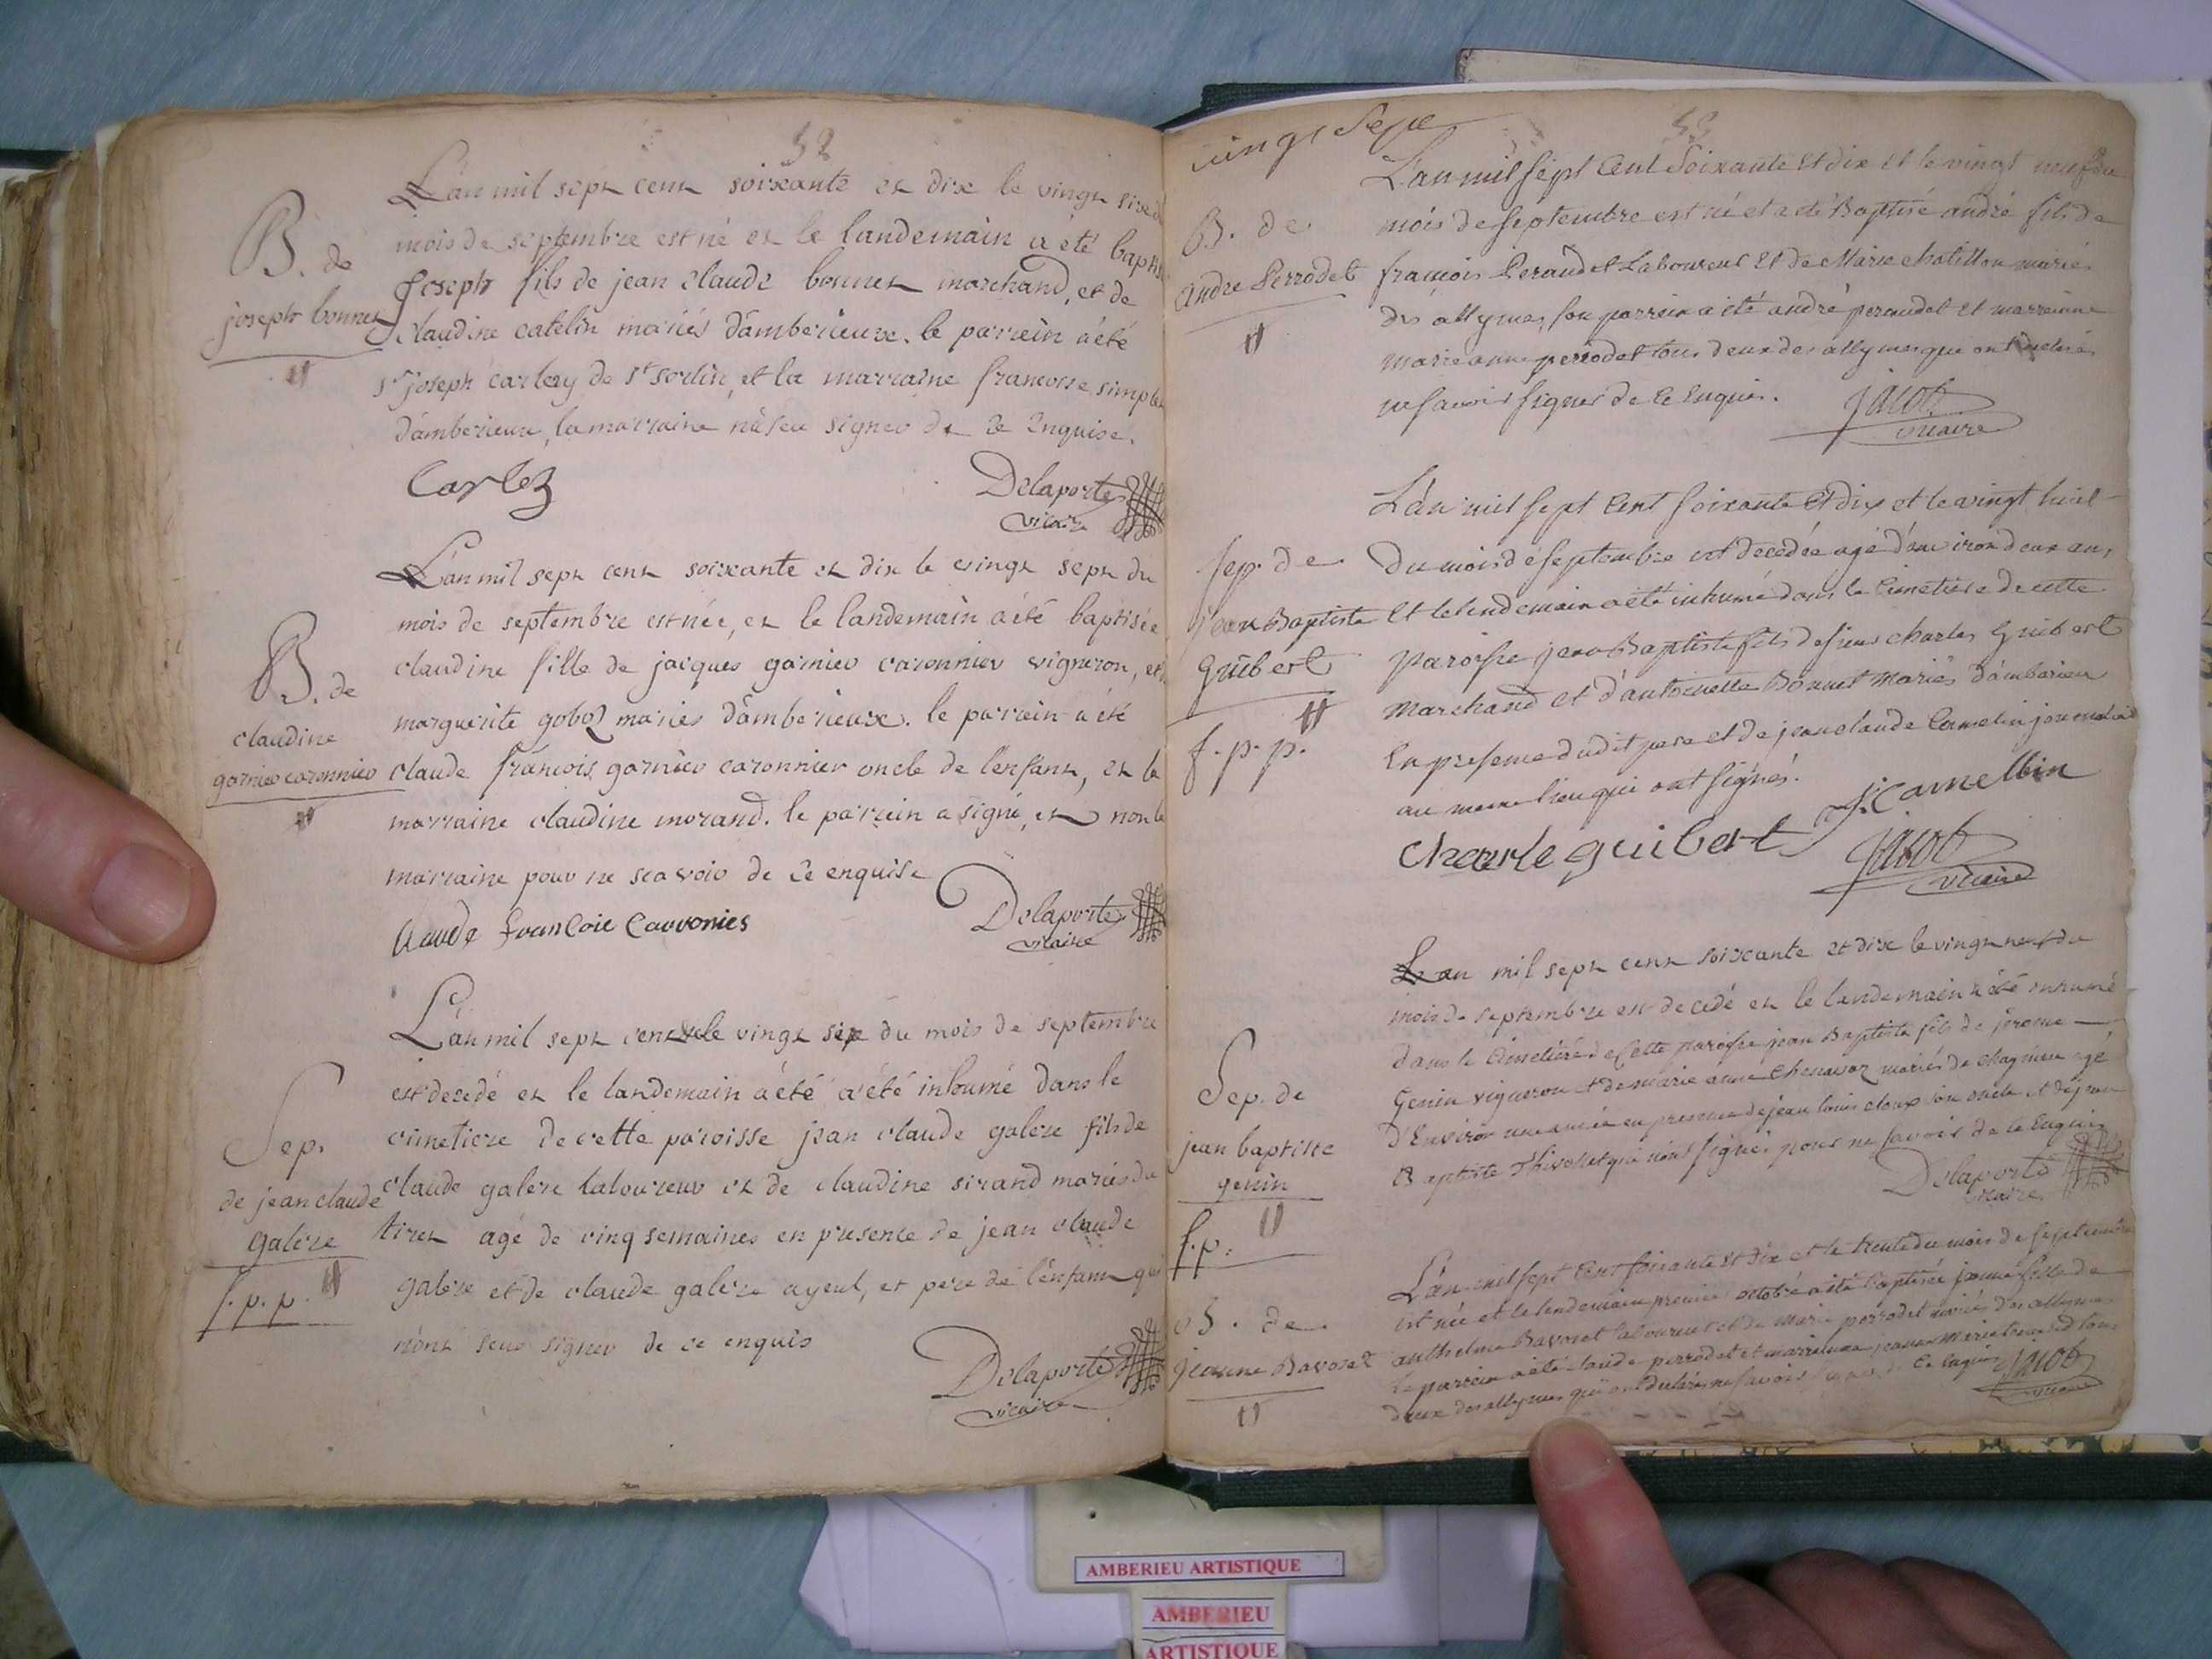 52
L'an mil sept cent soixante et dix le vingt six du
mois de septembre est né et le landemain a été baptisé
B. de
joseph bonnet
joseph fils de jean claude bonnet marchand, et de
claudine catelin mariés d'amberieux. le parrein a été
sr joseph carlez de st sorlin, et la marraine francoise simplex
d'amberieux, la marraine n'a seu signer de ce enquise.
Carlez
Delaporte
vicaire
L'an mil sept cent soixante et dix le vingt sept du
mois de septembre est née, et le landemain a été baptisée
B. de
claudine
garnier caronnier
claudine fille de jacques garnier caronnier vigneron, et
marguerite goboz mariés d'amberieux. le parrein a été
claude francois garnier caronnier oncle de l'enfant, et la
marraine claudine morand. le parrein a signé, et non la
marraine pour ne scavoir de ce enquise
claude francoie Carronier
Delaporte
vicaire
L'an mil sept cent le vingt six du mois de septembre
est decedé et le landemain a été a été inhumé dans le
Sep.
de jean claude
galere
f. p. p.
cimetiere de cette paroisse jean claude galere fils de
claude galere laboureur et de claudine sirand mariés du
tiret agé de cinq semaines en presence de jean claude
galere et de claude galere ayeul, et pere de l'enfant qui
n'ont seu signer de ce enquis
Delaporte
vicaire
vingt sept
53
L'an mil sept cent soixante et dix et le vingt neuf du
B. de
andre Perrodet
mois de septembre est né et a été Baptisé andré fils de
francois Peraudet Laboureur et de Marie chatillon mariés
des allymes, son parrein a été andré peraudet et marreinne
marie anne perrodet tous deux des allymes qui ont declarés
ne savoir signer de ce enquis.
jacob
vicaire
L'an mil sept cent soixante et dix et le vingt huit
Sep. de
jean Baptiste
Guibert
f. p. p.
du mois de septembre est decedée agé d'environ deux ans,
et le lendemain a été inhumé dans le cimetiere de cette
paroisse jean Baptiste fils de sieur charles Guibert
marchand et d'antoinette Bonnet mariés d'amberieu
en presence dudit pere et de jean claude Camelin journalier
au meme lieu qui ont signés.
J: Camelbin
charle guibert
jacob
vicaire
L'an mil sept cent soixante et dix le vingt neuf du
mois de septembre est decedé et le landemain a été inhumé
Sep. de
jean baptiste
genin
f. p.
dans le cimetiere de cette paroisse jean Baptiste fils de jerome
Genin vigneron et de marie anne Chenavoz mariés de chagnieu agé
d'environ une année en presence de jean louis cloux son oncle et de jean
Baptiste Thivollet qui n'ont signés pour ne savoir de ce Enquis
Delaporte
vicaire
L'an mil sept cent soixante et dix et le trente du mois de septembre
B. de
jeanne Bavozet
est née et le lendemain premier octobre a été baptisée jeanne fille de
anthelme Bavozet laboureur et de marie perrodet mariés des allymes
le parrein a été claude perrodet et marreinne jeanne marie tous
deux des allymes qui ont declarés ne savoir signer de ce enquis
jacob
vicaire
AMBERIEU ARTISTIQUE
AMBERIEU
ARTISTIQUE